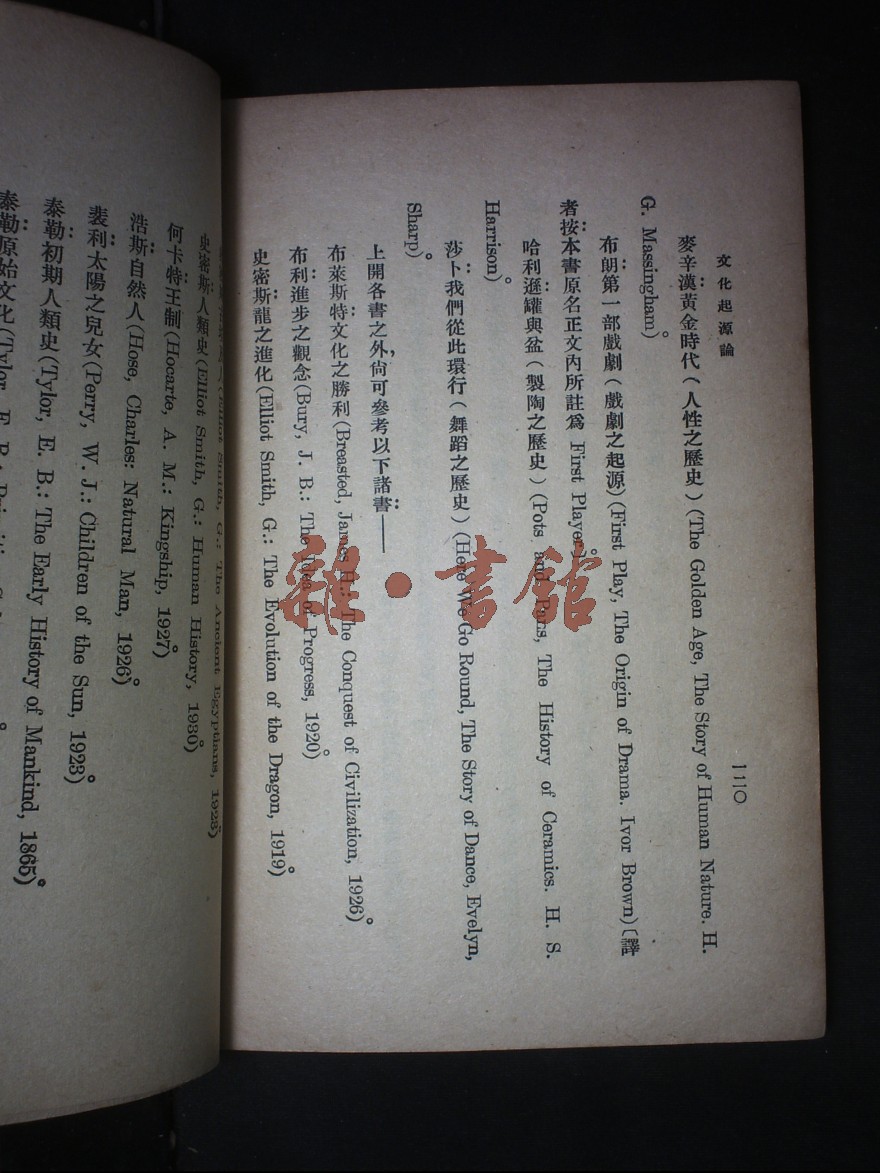 文化起源論
一一一〇
麥辛漢黃金時代(人性之歷史)(The Golden Age, The Story of Human Nature. H.
G. Massingham)。
布朗第一部戲劇(戲劇之起源)(First Play, The Origin of Drama. Ivor Brown)〔譯
者按:本書原名正文內所註爲 First Player〕。
哈利遜罐與盆(製陶之歷史)(Pots and Pans, The History of Ceramics. H. S.
Harrison)。
莎卜我們從此環行(舞蹈之歷史)(Here We Go Round, The Story of Dance, Evelyn,
Sharp)。
上開各書之外,尙可參考以下諸書:——
布萊斯特文化之勝利(Breasted, James H.: The Conquest of Civilization, 1926)。
布利進步之觀念(Bury, J. B.: The Idea of Progress, 1920)。
史密斯龍之進化(Elliot Smith, G.: The Evolution of the Dragon, 1919)。
(Elliot Smith, G.: The Ancient Egyptians, 1923)
史密斯人類史(Elliot Smith, G.: Human History, 1930)。
何卡特王制(Hocarte, A. M.: Kingship, 1927)。
浩斯自然人(Hose, Charles: Natural Man, 1926)。
裴利太陽之兒女(Perry, W. J.: Children of the Sun, 1923)。
泰勒初期人類史(Tylor, E. B.: The Early History of Mankind, 1865)。
泰勒原始文化(Tylor, E. B.: Primitive
雜·書館